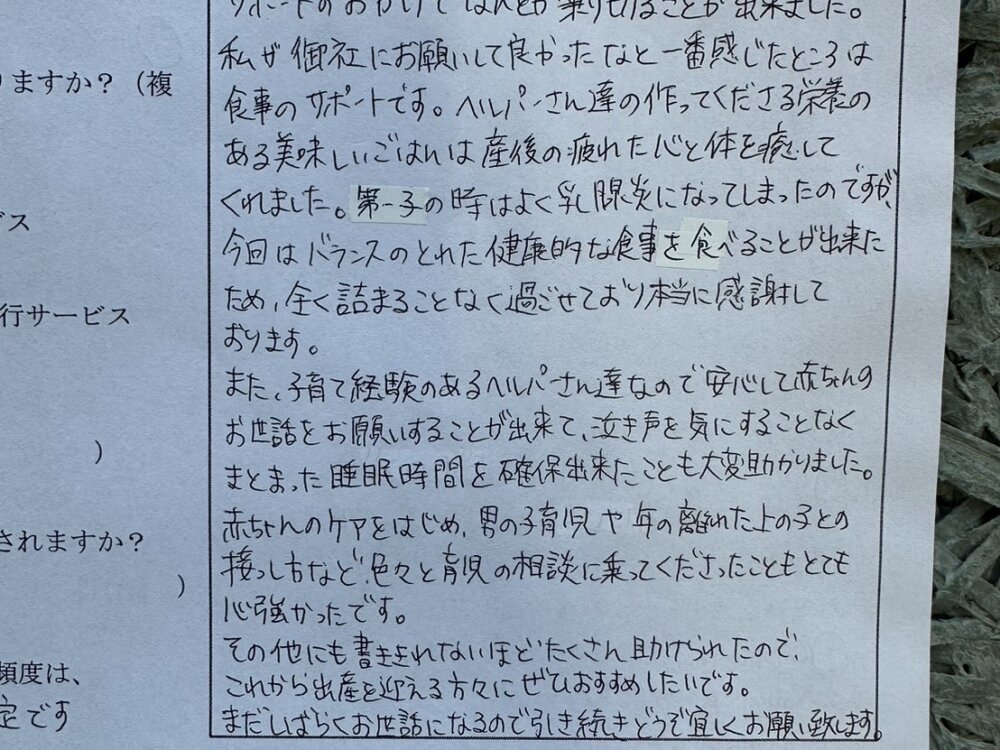 サポートのおかげでなんとか乗り切ることが出来ました。
私が御社にお願いして良かったなと一番感じたところは
りますか？（複
食事のサポートです。ヘルパーさん達の作ってくださる栄養の
ある美味しいごはんは産後の疲れた心と体を癒して
くれました。第一子の時はよく乳腺炎になってしまったのですが、
ビス
今回はバランスのとれた健康的な食事を食べることが出来た
ため、全く詰まることなく過ごせており本当に感謝して
行サービス
おります。
また、子育て経験のあるヘルパーさん達なので安心して赤ちゃんの
お世話をお願いすることが出来て、泣き声を気にすることなく
）
まとまった睡眠時間を確保出来たことも大変助かりました。
赤ちゃんのケアをはじめ、男の子育児や年の離れた上の子との
されますか？
接し方など、色々と育児の相談に乗ってくださったこともとても
）
心強かったです。
その他にも書ききれないほどたくさん助けられたので、
頻度は、
これから出産を迎える方々にぜひおすすめしたいです。
定です
まだしばらくお世話になるので引き続きどうぞ宜しくお願い致します。